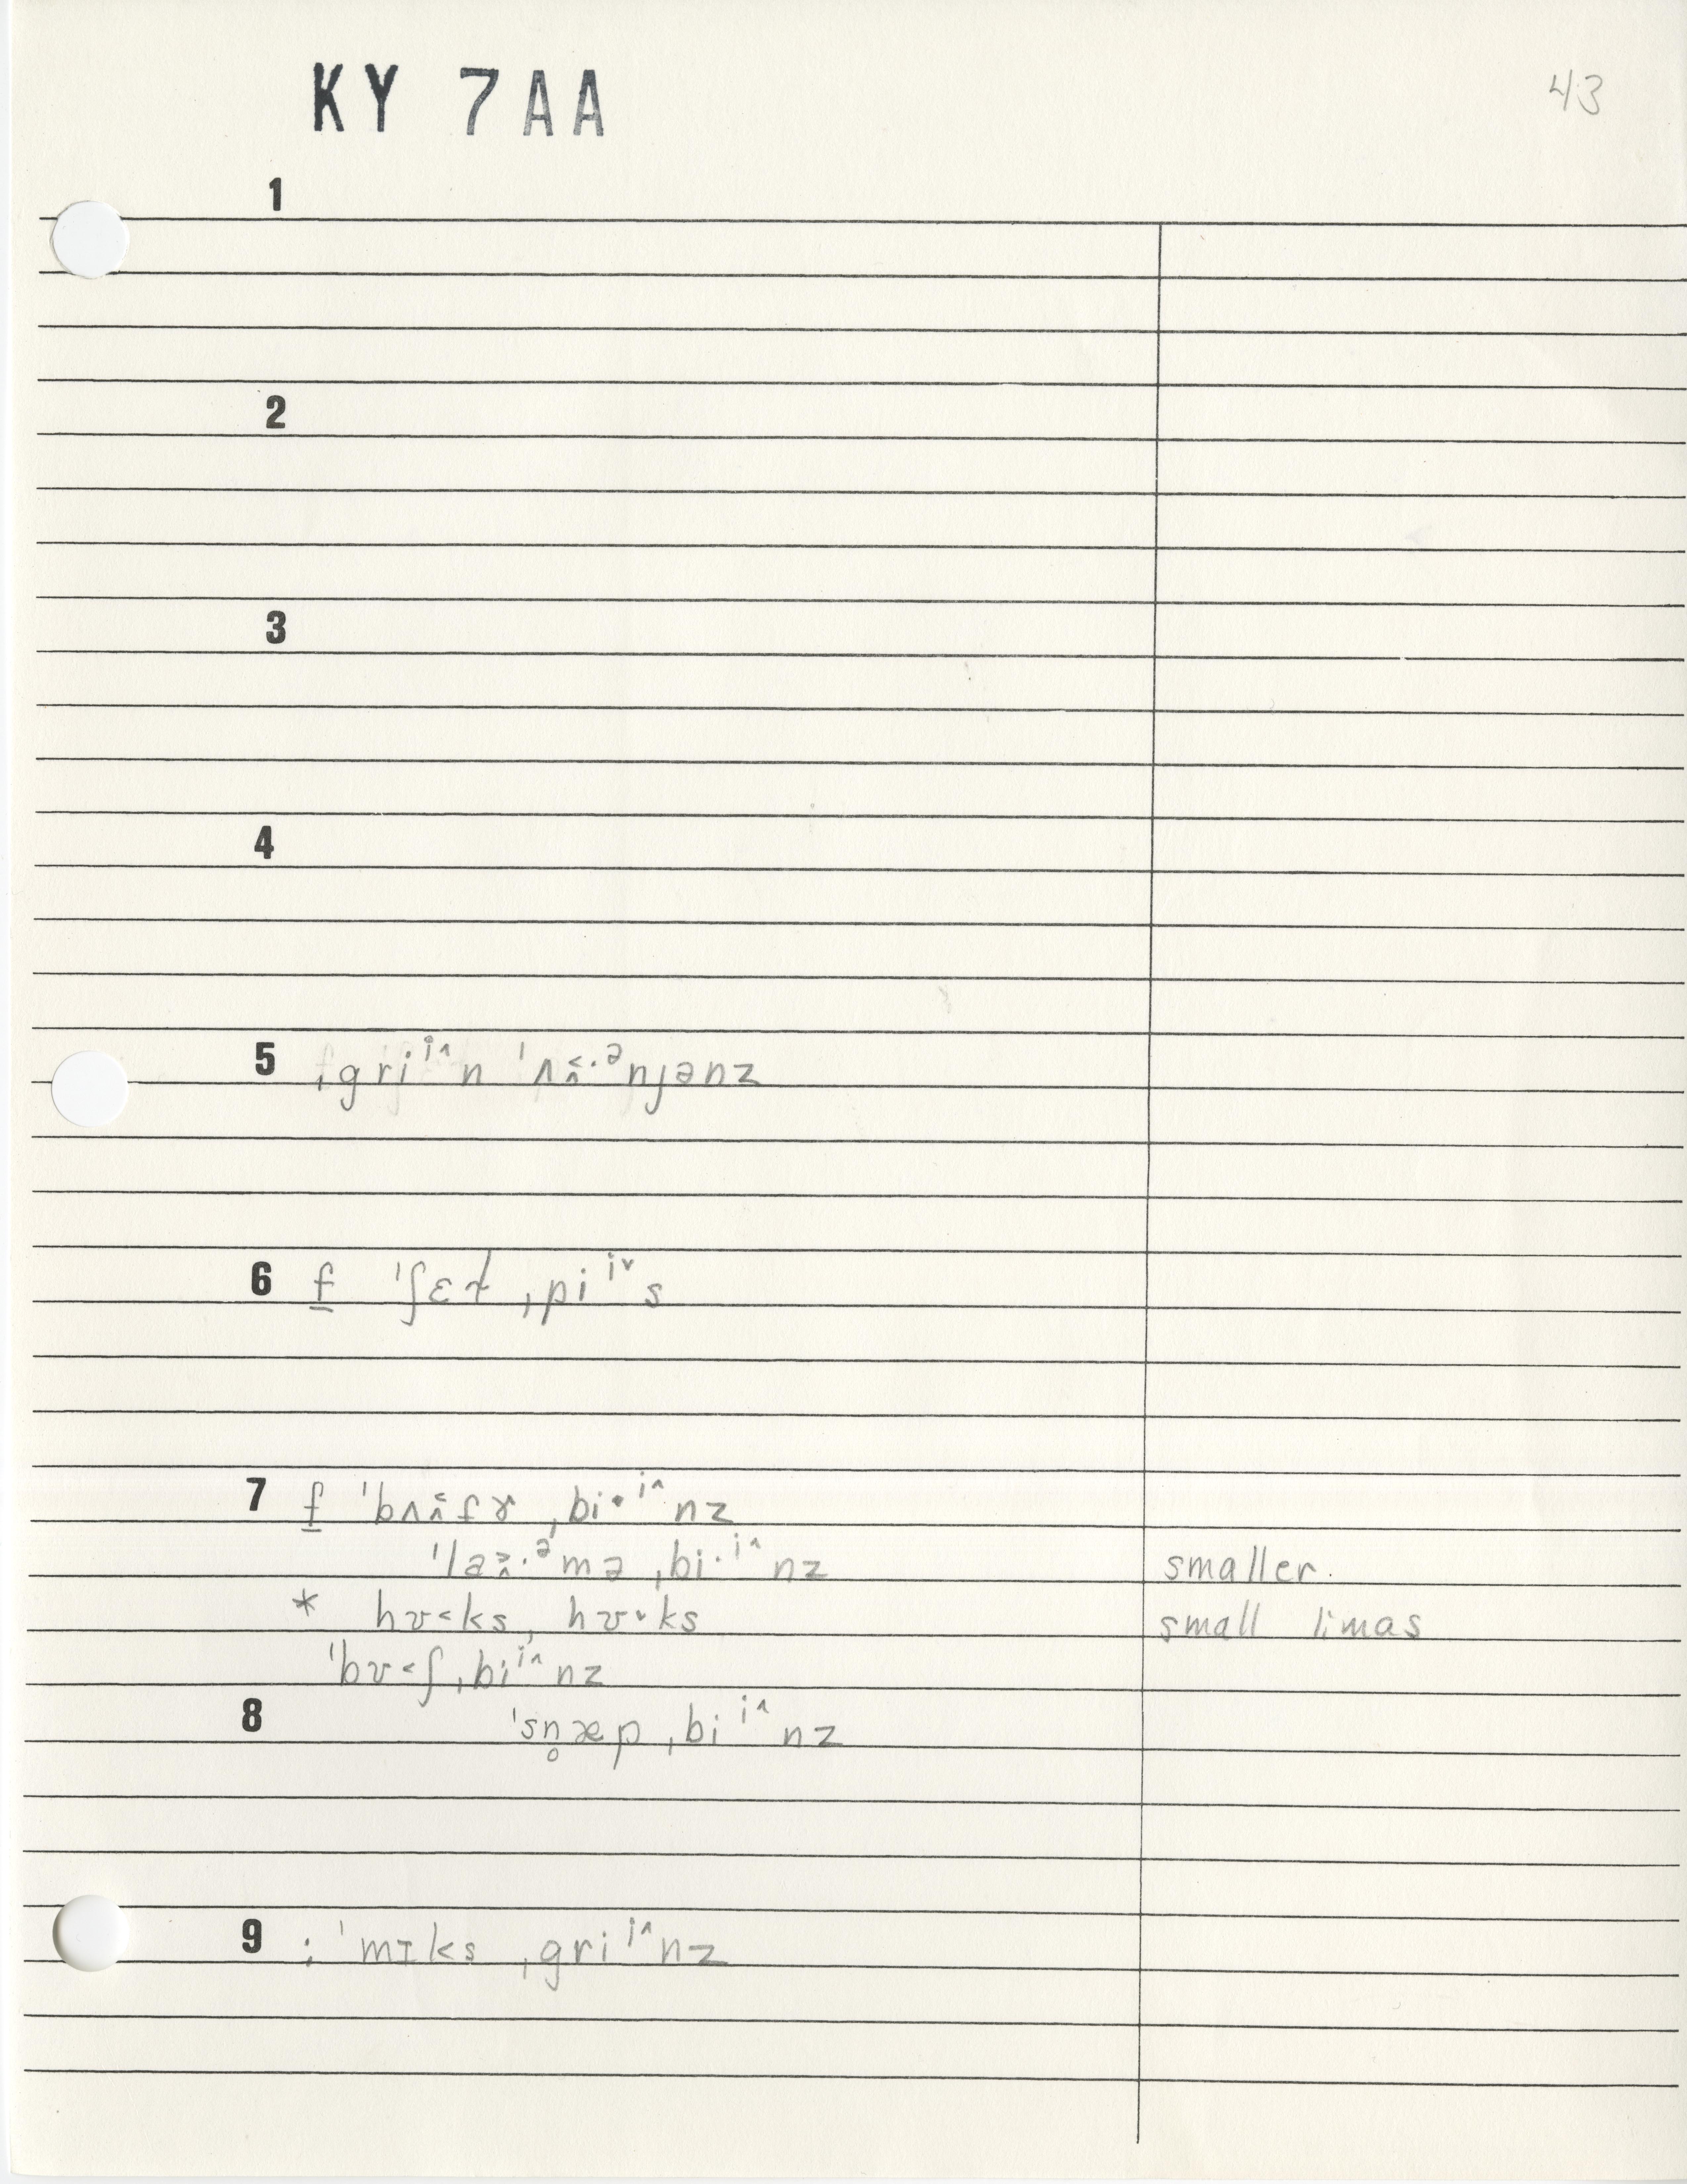 KY 7AA
43
1
2
3
4
5 ˌgriⁱ˄n ˈʌ̃˂̭·ᵊnjənz
6 f̲ ˈʃɛɫ ˌpiⁱ˅s
7 f̲ ˈbʌ̃˂̭fɚ ˌbi·ⁱ˄nz
ˈlaɛ̭̃·ᵊmə ˌbi·ⁱ˄nz smaller
* hʊ˂ks, hʊ˅ks small limas
ˈbʊ˂ʃ ˌbiⁱ˄nz
8 ˈsn̥æp ˌbiⁱ˄nz
9 ; ˈmɪks ˌgriⁱ˄nz